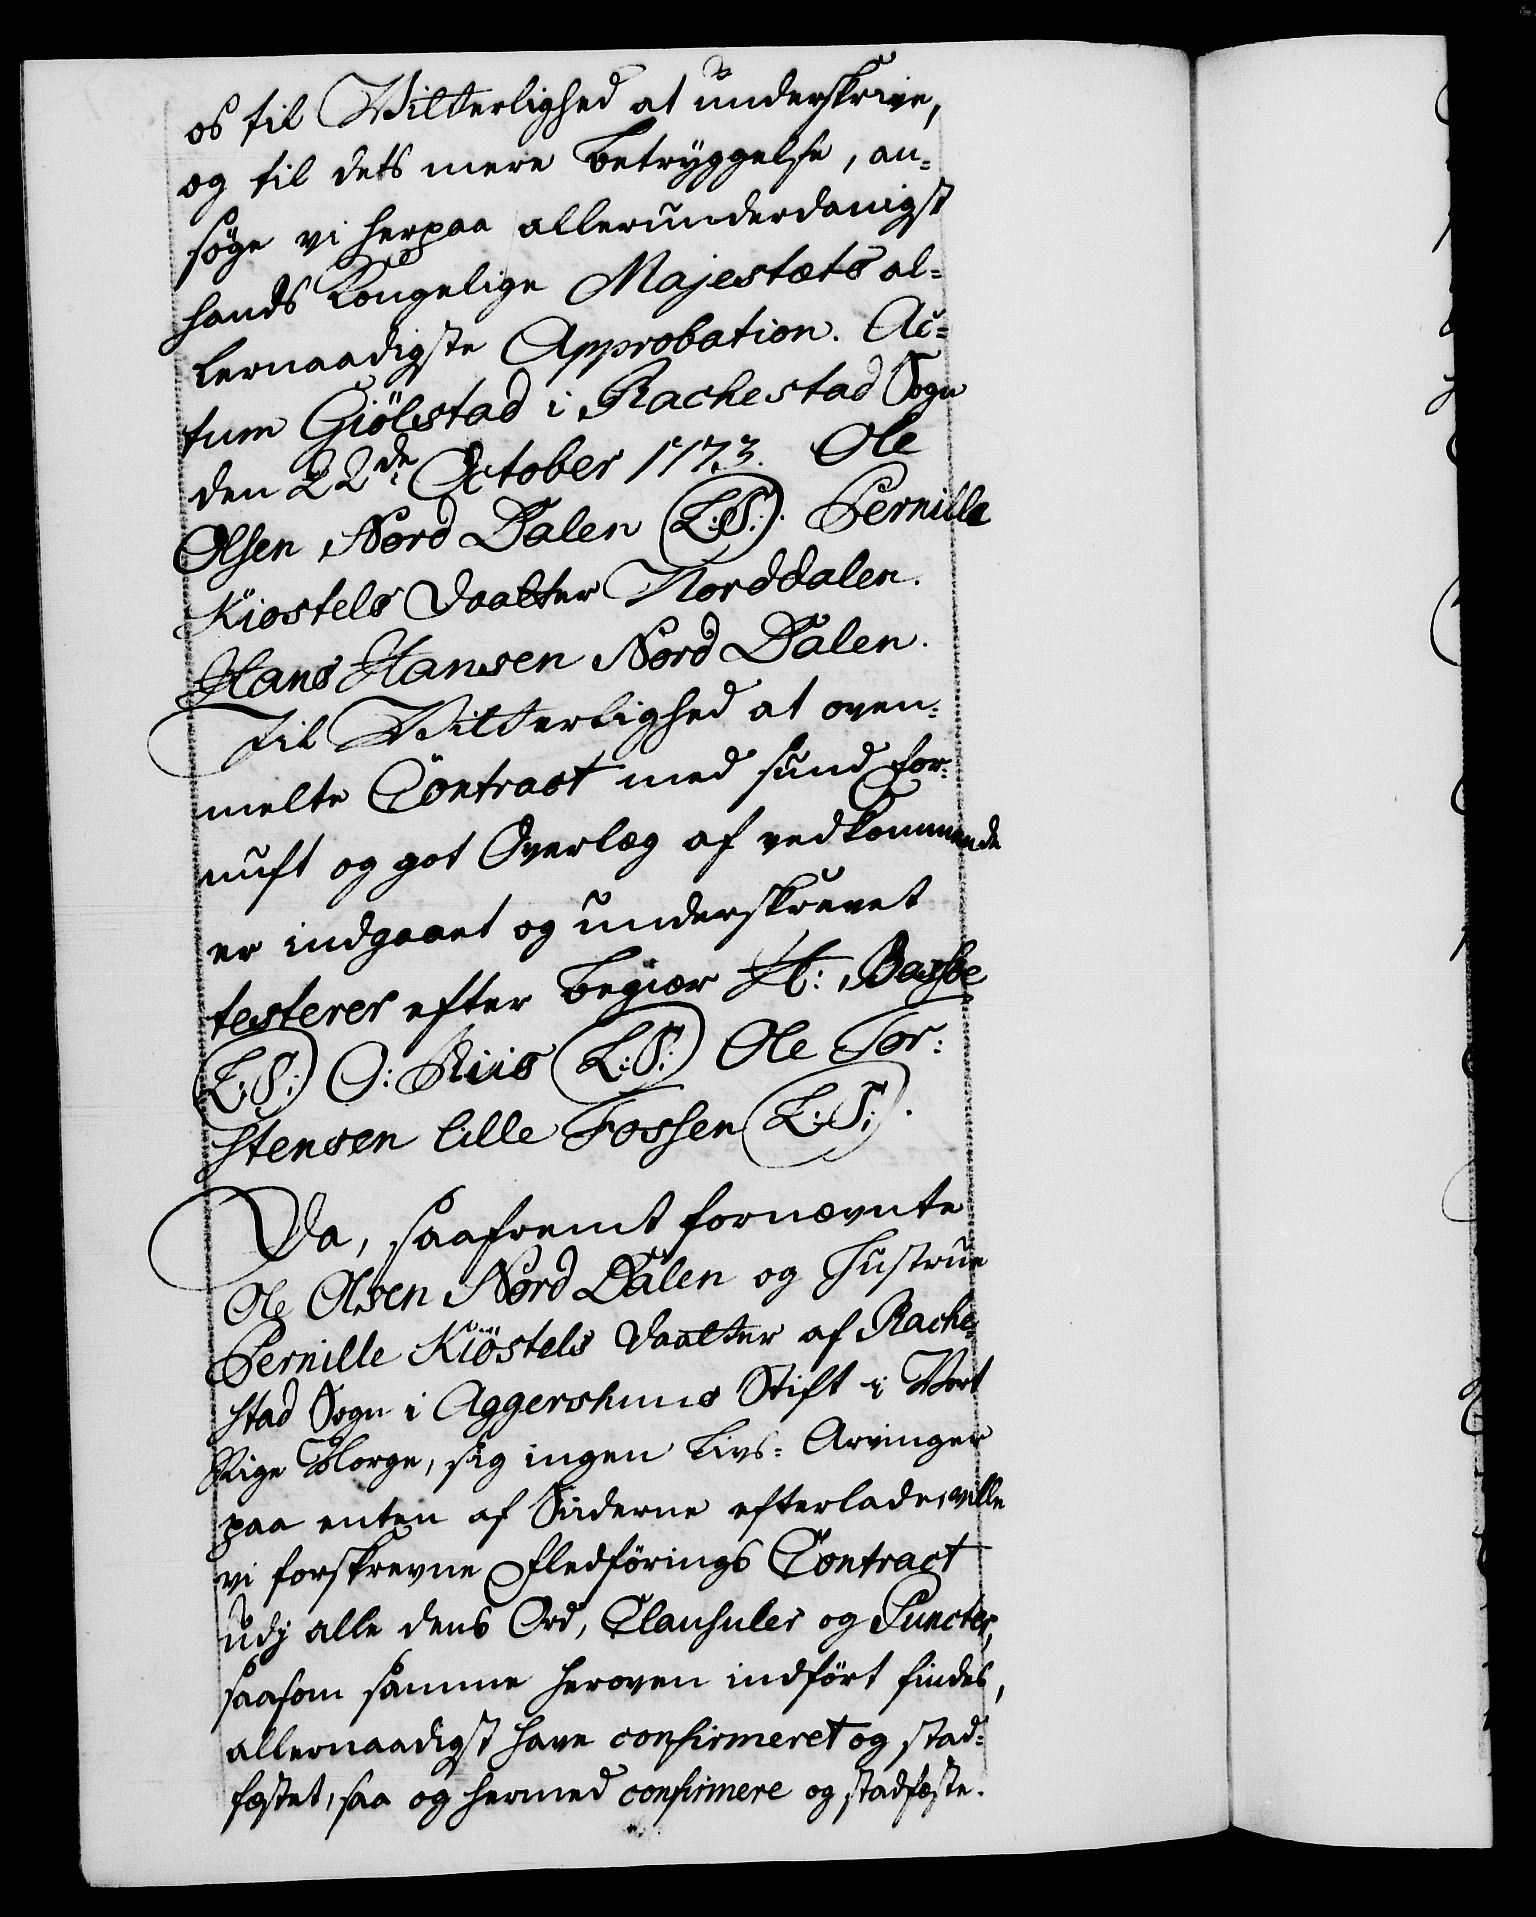 os til Vitterlighed at underskrive,
og til dets mere betryggelse, an-
søge vi herpaa allerunderdanigst
hands Kongelige Majestæts al-
lernaadigste Approbation. Ac-
tum Giölstad i Rachestad Sogn
den 22de October 1773. Ole
Olsen Nord Dalen (L:S:). Pernille
Kiostels Daatter Norddalen.
Hans Hansen Nord Dalen.
Til Vitterlighed at oven-
melte Contract med sund For-
nuft og got Overlæg af vedkommende
er indgaaet og underskrevet
testerer efter begiær H:
(L:S:) O: Riis (L:S:) Ole Tor-
stensen lille Fossen (L:S:).
Da, saafremt fornævnte
Ole Olsen Nord Dalen og Hustrue
Pernille Kiöstels Daatter af Rache-
stad Sogn i Aggershuus Stift i Vort
Rige Norge, sig ingen Livs-Arvinger
paa enten af Siiderne efterlader, ville
vi forskrevne Fledförings Contract
udj alle dens Ord, Clausuler og Puncter,
saasom samme heroven indfört findes,
allernaadigst have confirmeret og stad-
fæstet, saa og hermed confirmere og stadfæste.